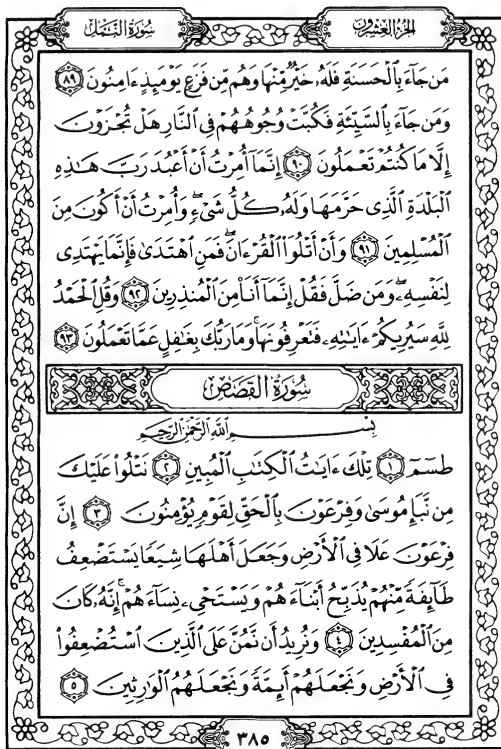 الجزء العشرون
سورة النمل
مَن جَآءَ بِٱلْحَسَنَةِ فَلَهُۥ خَيْرٌ مِّنْهَا وَهُم مِّن فَزَعٍ يَوْمَئِذٍ ءَامِنُونَ ٨٩
وَمَن جَآءَ بِٱلسَّيِّئَةِ فَكُبَّتْ وُجُوهُهُمْ فِى ٱلنَّارِ هَلْ تُجْزَوْنَ
إِلَّا مَا كُنتُمْ تَعْمَلُونَ ٩٠ إِنَّمَآ أُمِرْتُ أَنْ أَعْبُدَ رَبَّ هَٰذِهِ
ٱلْبَلْدَةِ ٱلَّذِى حَرَّمَهَا وَلَهُۥ كُلُّ شَىْءٍ وَأُمِرْتُ أَنْ أَكُونَ مِنَ
ٱلْمُسْلِمِينَ ٩١ وَأَنْ أَتْلُوَا۟ ٱلْقُرْءَانَ ۖ فَمَنِ ٱهْتَدَىٰ فَإِنَّمَا يَهْتَدِى
لِنَفْسِهِۦ ۖ وَمَن ضَلَّ فَقُلْ إِنَّمَآ أَنَا۠ مِنَ ٱلْمُنذِرِينَ ٩٢ وَقُلِ ٱلْحَمْدُ
لِلَّهِ سَيُرِيكُمْ ءَايَٰتِهِۦ فَتَعْرِفُونَهَا ۚ وَمَا رَبُّكَ بِغَٰفِلٍ عَمَّا تَعْمَلُونَ ٩٣
سورة القصص
بِسْمِ ٱللَّهِ ٱلرَّحْمَٰنِ ٱلرَّحِيمِ
طسٓمٓ ١ تِلْكَ ءَايَٰتُ ٱلْكِتَٰبِ ٱلْمُبِينِ ٢ نَتْلُوا۟ عَلَيْكَ
مِن نَّبَإِ مُوسَىٰ وَفِرْعَوْنَ بِٱلْحَقِّ لِقَوْمٍ يُؤْمِنُونَ ٣ إِنَّ
فِرْعَوْنَ عَلَا فِى ٱلْأَرْضِ وَجَعَلَ أَهْلَهَا شِيَعًا يَسْتَضْعِفُ
طَآئِفَةً مِّنْهُمْ يُذَبِّحُ أَبْنَآءَهُمْ وَيَسْتَحْىِۦ نِسَآءَهُمْ ۚ إِنَّهُۥ كَانَ
مِنَ ٱلْمُفْسِدِينَ ٤ وَنُرِيدُ أَن نَّمُنَّ عَلَى ٱلَّذِينَ ٱسْتُضْعِفُوا۟
فِى ٱلْأَرْضِ وَنَجْعَلَهُمْ أَئِمَّةً وَنَجْعَلَهُمُ ٱلْوَٰرِثِينَ ٥
٣٨٥